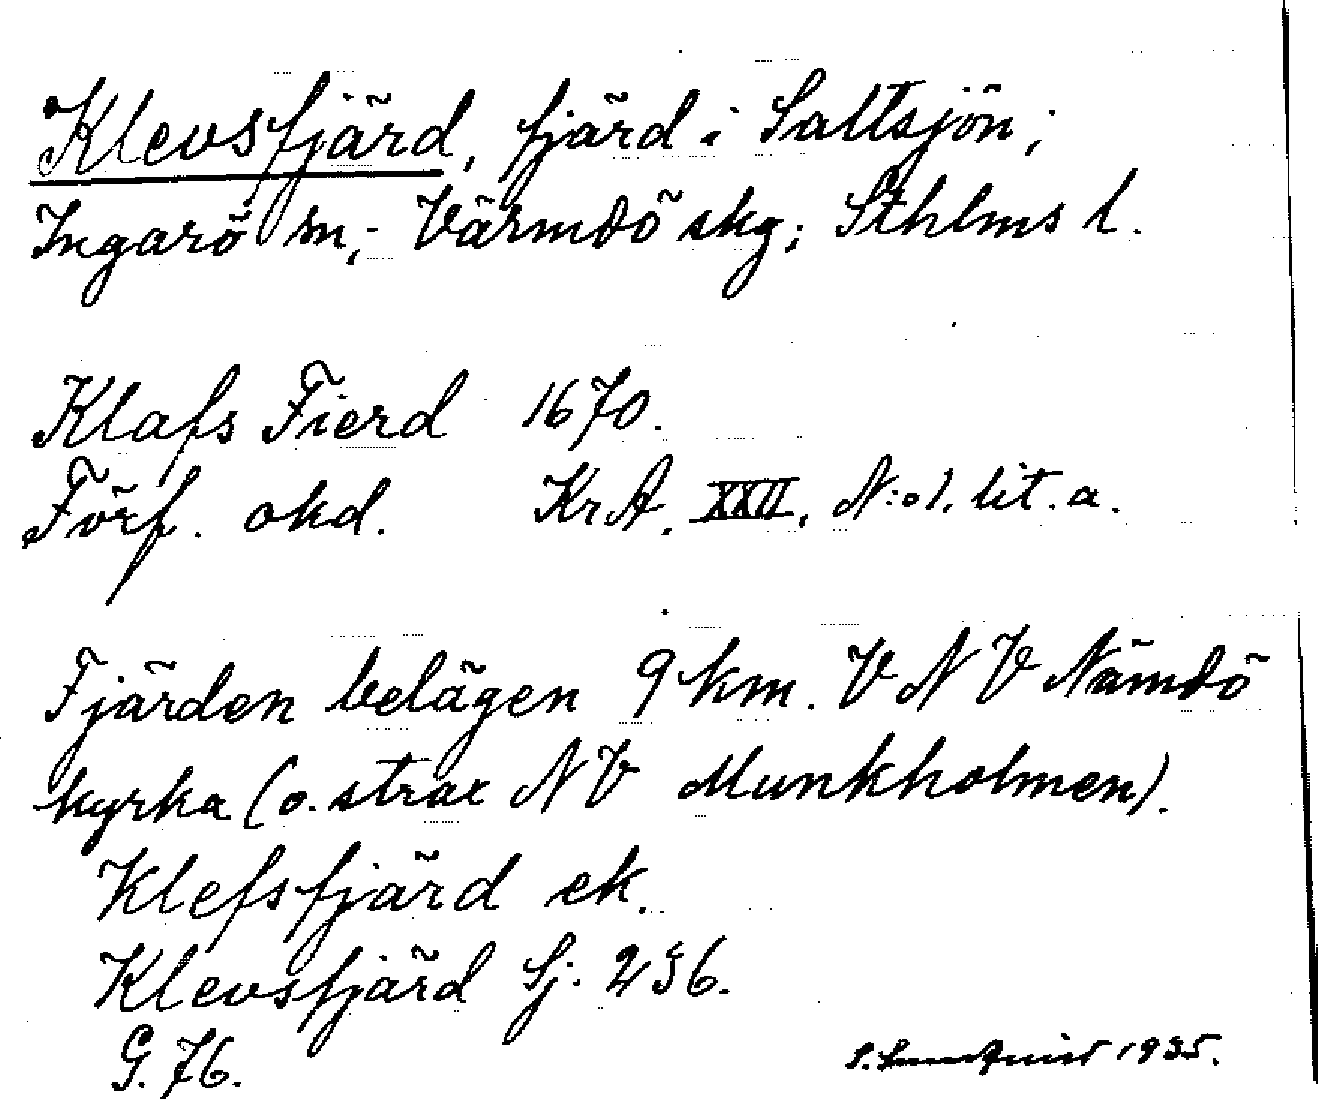 Klevsfjärd, fjärd i Saltsjön;
Ingarö sn; Värmdö skg; Sthlms l.
Klafs Fierd 1670.
Förf. okd. KrA. XXII, N:o 1. lit. a.
Fjärden belägen 9 km. V N V Nämdö
kyrka (o. strax N V Munkholmen).
Klefsfjärd ek.
Klevsfjärd Sj. 236.
G. 76.
1935.